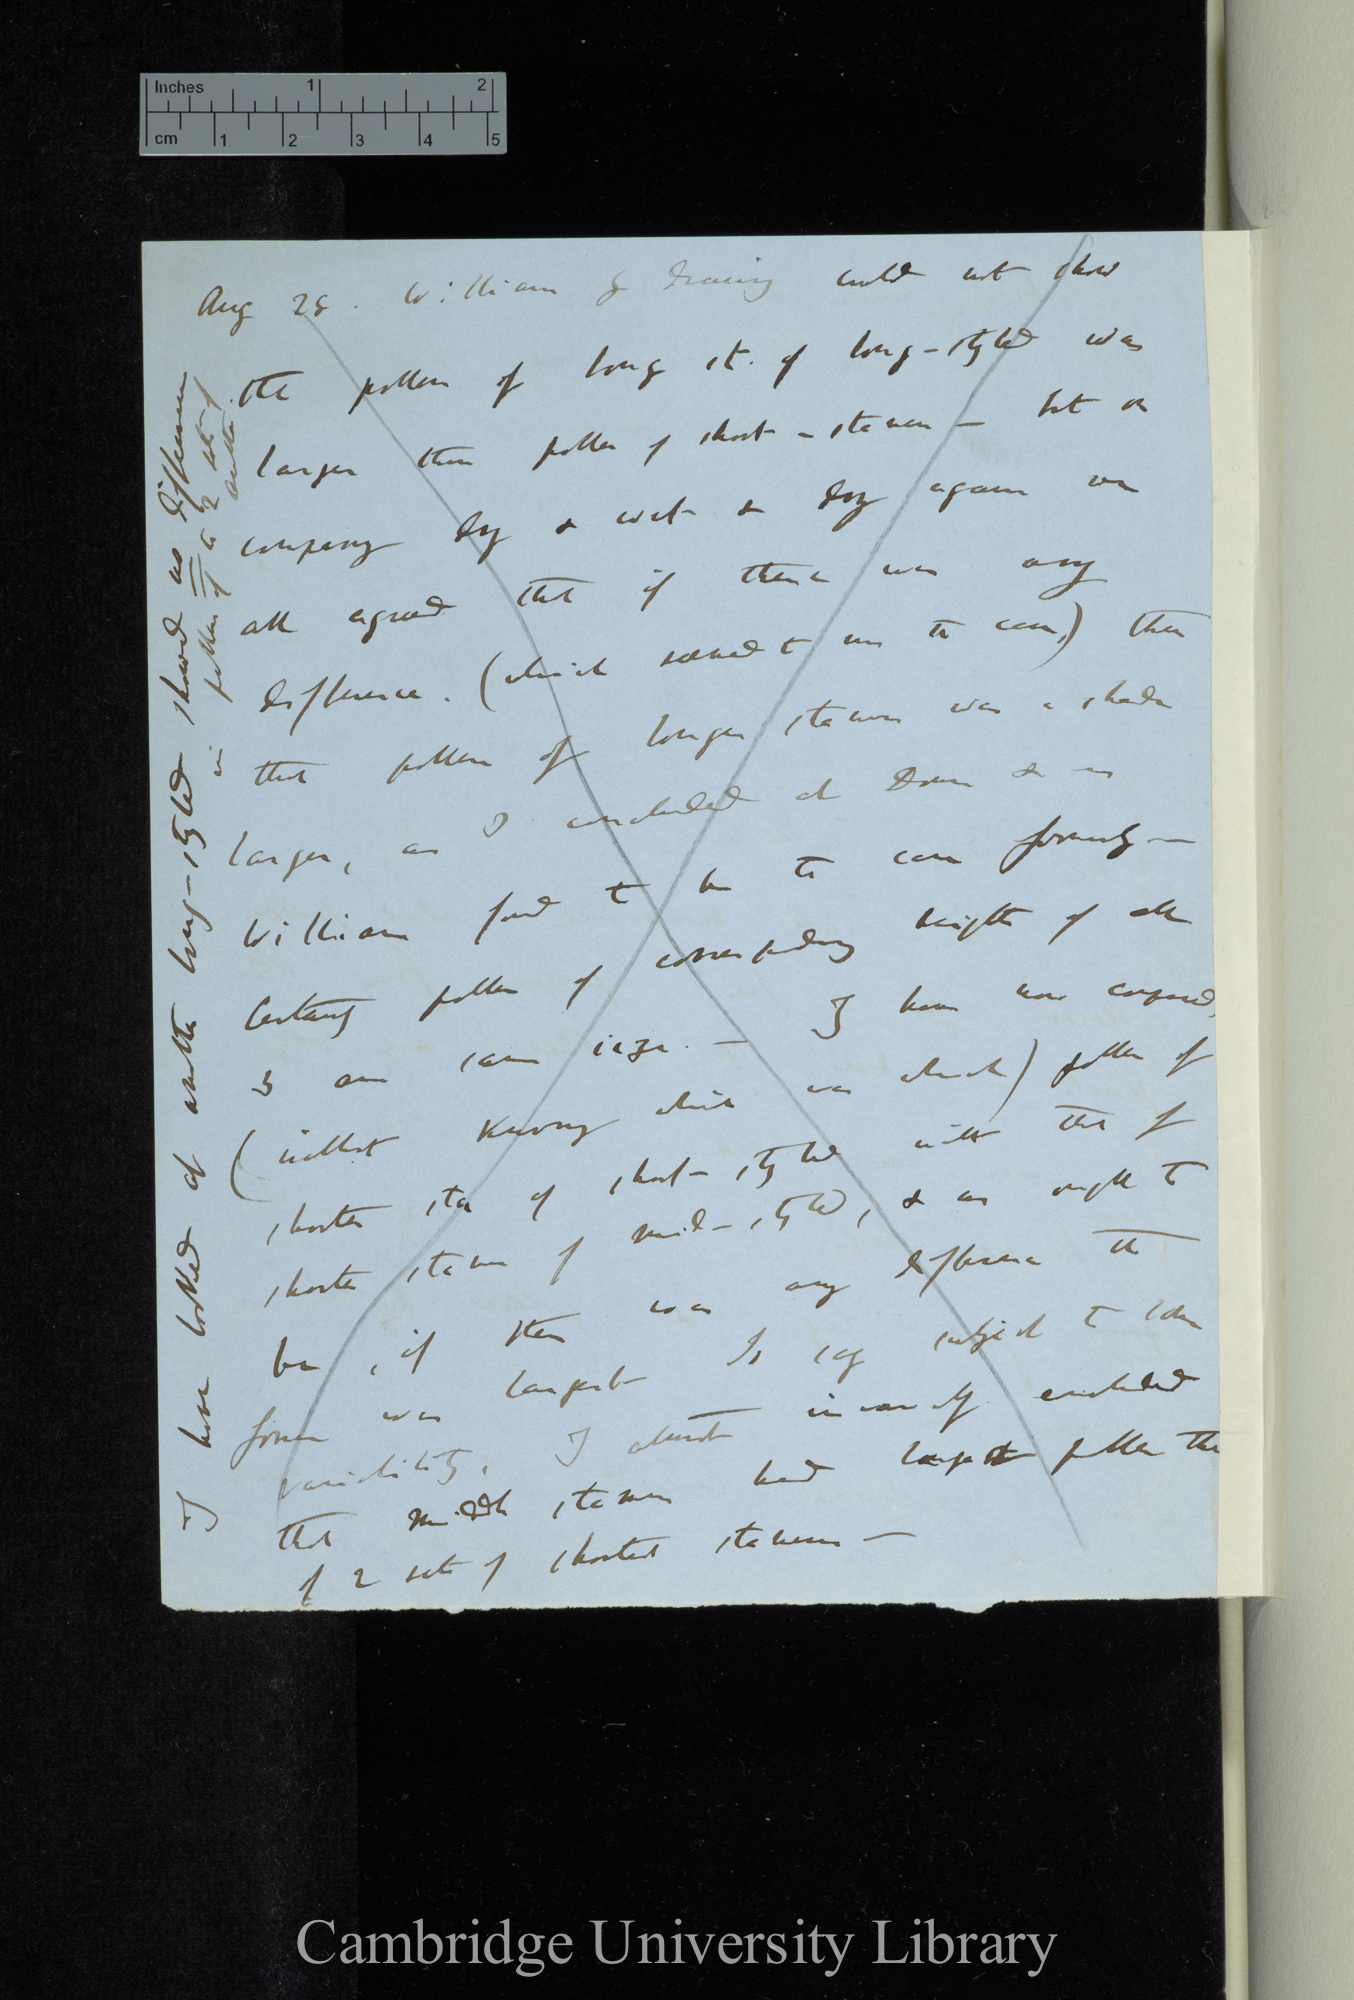 Inches 1 2
cm 1 2 3 4 5
Aug 28. William & drawing could not show
the pollen of long st. of long-styled was
larger than pollen of short-stamen — but on
comparing dry & wet & dry again we
all agreed that if there was any
difference. (which seemed to me the case,) then
that pollen of longer stamens was a shade
larger, as I concluded at Down & as
William found to be the case formerly —
Certainly pollen of corresponding heights of all
3 are same size. — I have now compared,
(without knowing which was which) pollen of
shorter sta of short-styled with that of
shorter stamens of mid-styled, & as ought to
be, if there was any difference the
former was largest Is size subject to some
variability, I almost inwardly concluded
that middle stamens had largest pollen than
of 2 sets of shortest stamens —
I have looked at another long-styled showed no difference
in pollen of the 2 sets of
anthers
Cambridge University Library